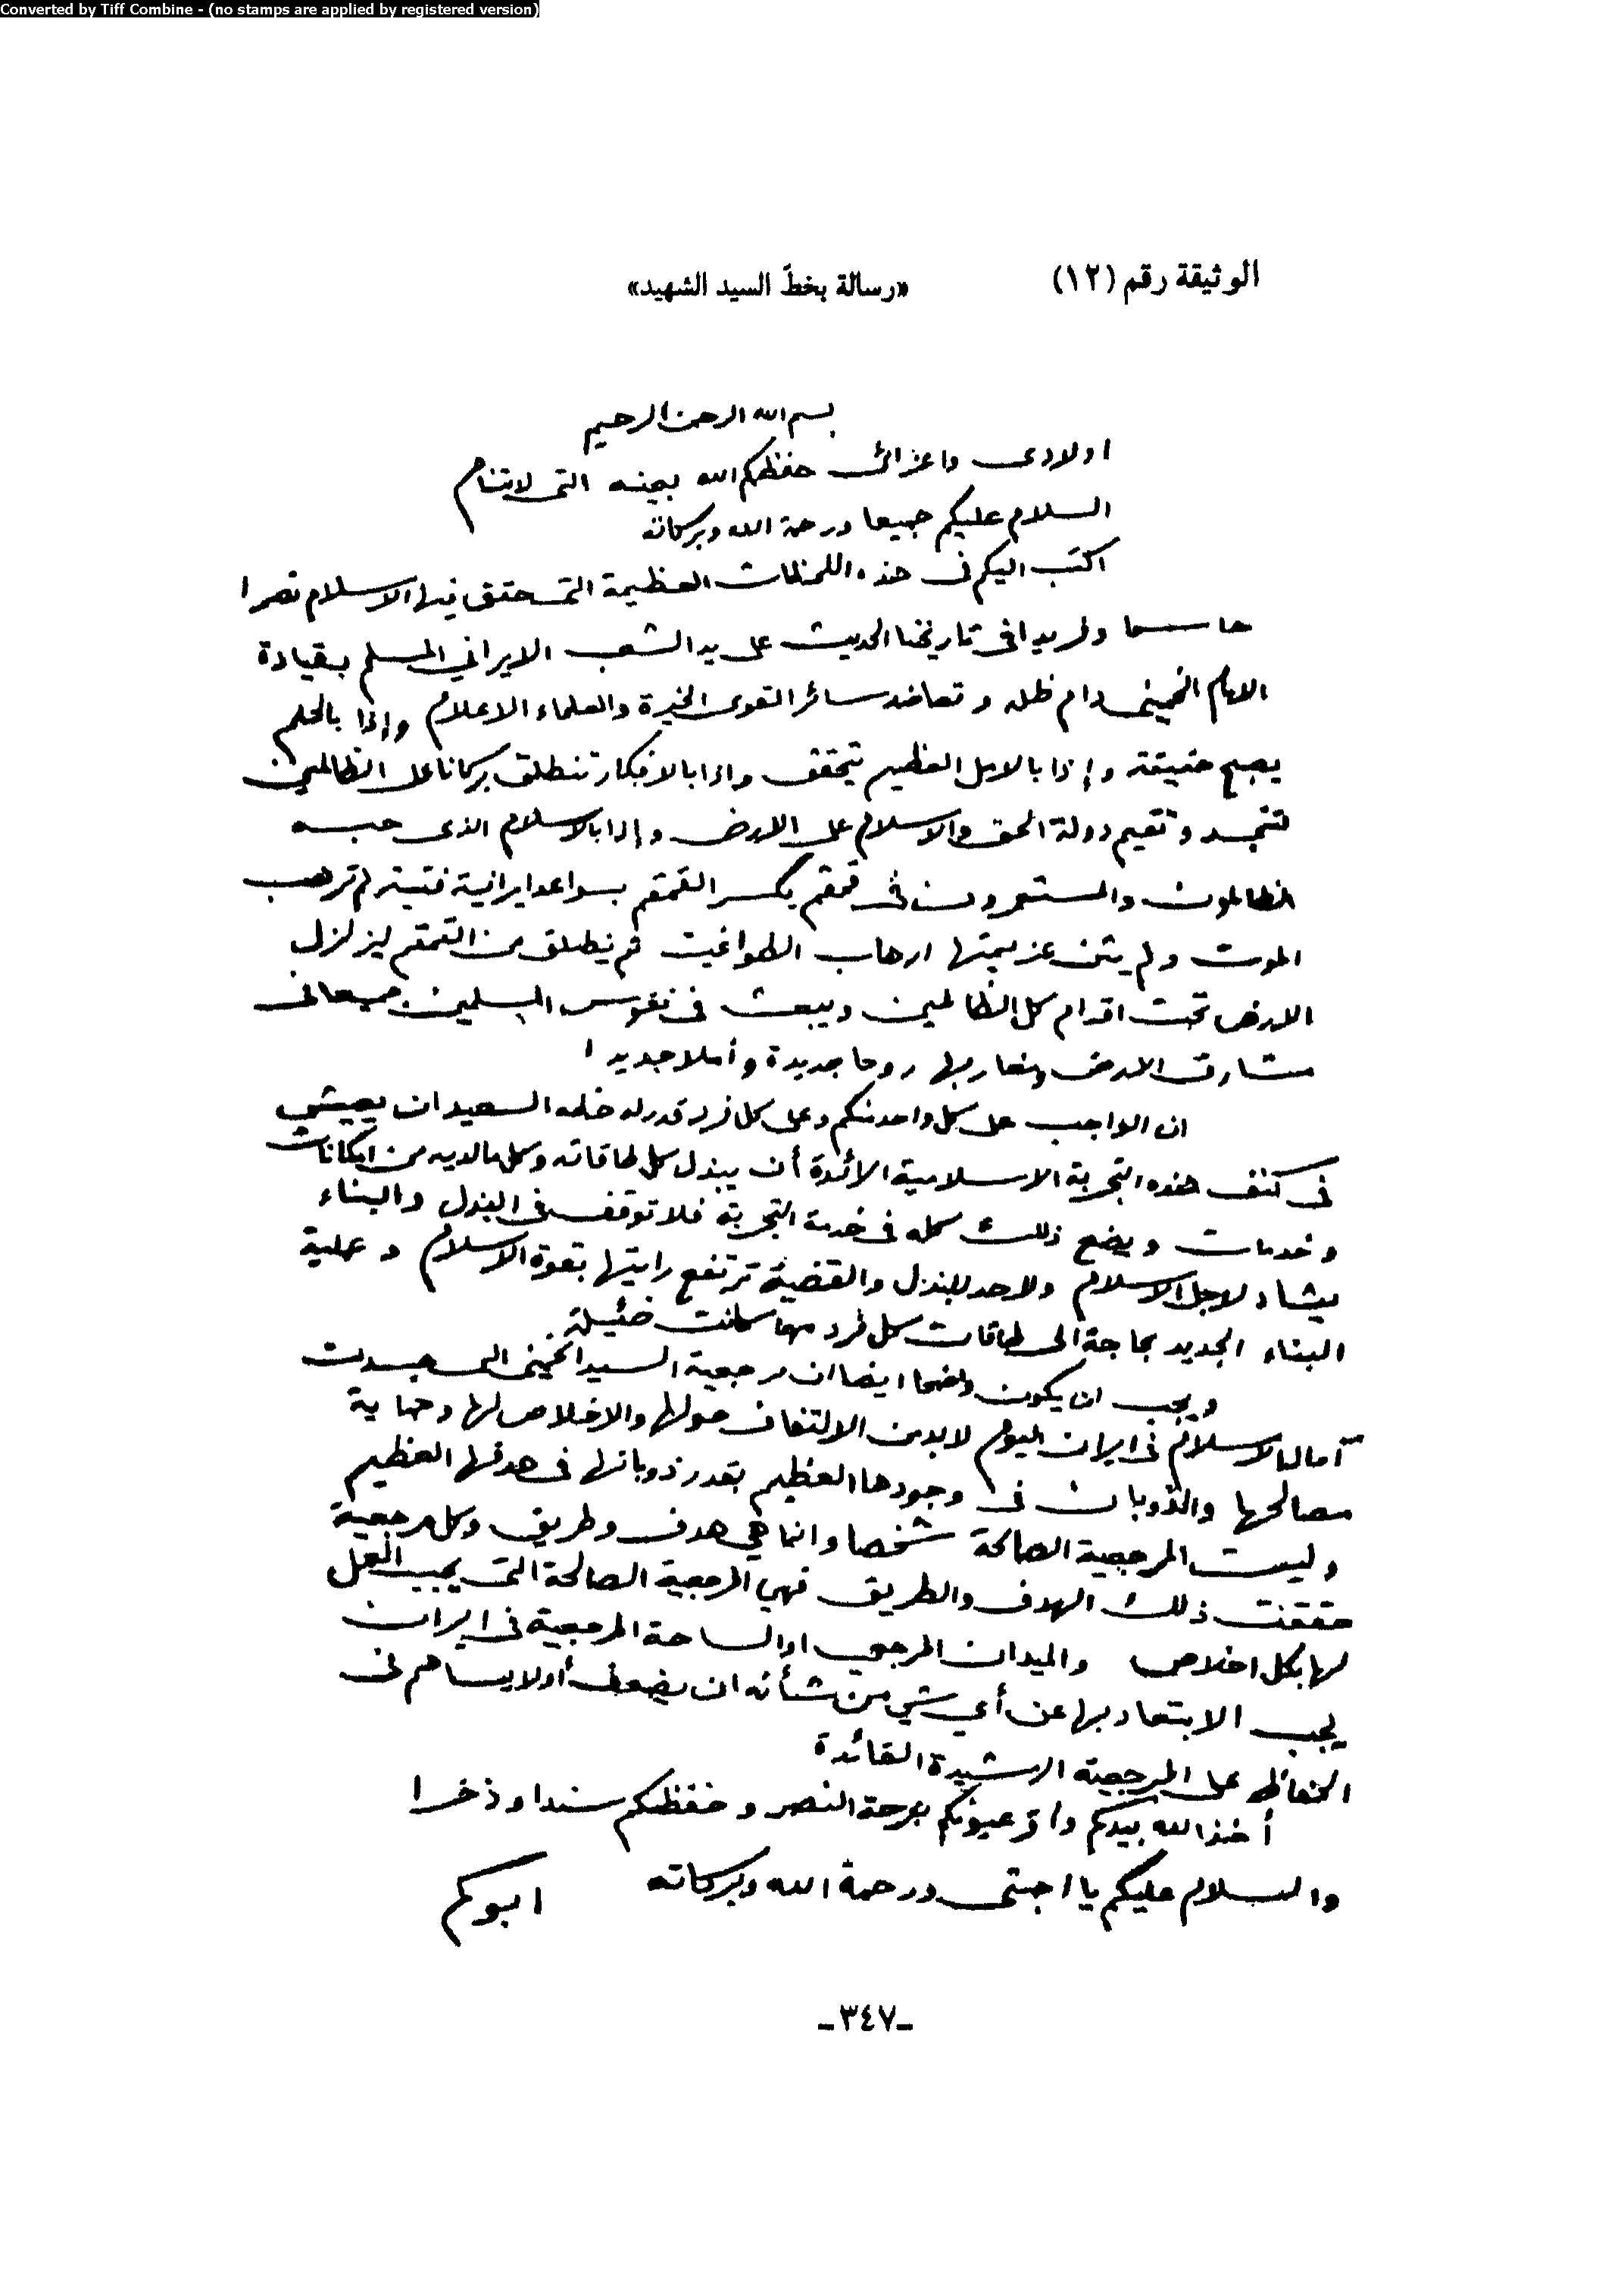 Converted by Tiff Combine - (no stamps are applied by registered version)
الوثيقة رقم (١٢) «رسالة بخطّ السيد الشهيد»
بسم الله الرحمن الرحيم
اولادى واعزائى حفظكم الله بعينه التى لاتنام
السلام عليكم جميعا ورحمة الله وبركاته
اكتب اليكم فى هذه اللحظات العظيمة التى حقق فيها الاسلام نصرا
حاسما وفريدا فى تاريخنا الحديث على يد الشعب الايراني المسلم بقيادة
الامام الخمينى دام ظله وتعاضد سائر القوى الخيرة والعلماء الاعلام وإذا بالحلم
يصبح حقيقة وإذا بالامل العظيم يتحقق واذا بالافكار تنطلق بركانا على الظالمين
لتتجسد وتقيم دولة الحق والاسلام على الارض وإذا بالاسلام الذى حبسه
الظالمون والمستعمرون فى قمقم يكسر القمقم بسواعد ايرانية فتية لم ترهب
الموت ولم يثن عزيمتها ارهاب الطواغيت ثم ينطلق من القمقم ليزلزل
الارض تحت اقدام كل الظالمين ويبعث فى نفوس المسلمين جميعا فى
مشارق الارض ومغاربها روحا جديدة وأملا جديدا
ان الواجب على كل واحد منكم وعلى كل فرد قدر له حظه السعيد ان يعيش
فى كنف هذه التجربة الاسلامية الرائدة أن يبذل كل طاقاته وكل مالديه من امكانات
وخدمات ويضع ذلك كله فى خدمة التجربة فلا توقف فى البذل والبناء
يشاد لاجل الاسلام ولا حد للبذل والقضية ترتفع رايتها بقوة الاسلام وعملية
البناء الجديد بحاجة الى طاقات كل فرد مهما كانت ضئيلة.
ويجب ان يكون واضحا ايضا ان مرجعية السيد الخمينى التى جسدت
آمال الاسلام فى ايران اليوم لابد من الالتفاف حولها والاخلاص لها وحماية
مصالحها والذوبان فى وجودها العظيم بقدر ذوبانها فى هدفها العظيم
وليست المرجعية الصالحة شخصا وانما هي هدف وطريق وكل مرجعية
حققت ذلك الهدف والطريق فهي المرجعية الصالحة التى يجب العمل
لها بكل اخلاص والميدان المرجعي او الساحة المرجعية فى ايران
يجب الابتعاد بها عن أي شي من شأنه ان يضعف أو لا يساهم فى
الحفاظ على المرجعية الرشيدة القائدة
أخذ الله بيدكم واقر عيونكم بفرحة النصر وحفظكم سندا وذخرا
والسلام عليكم يا احبتى ورحمة الله وبركاته ابوكم
-٣٤٧-